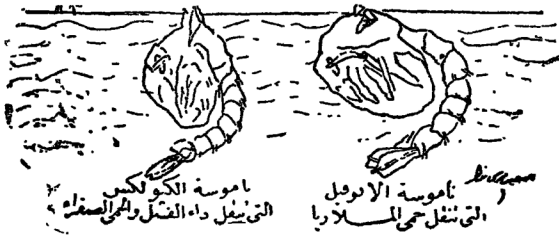 ناموسة الانوفيل
التى تنقل حمى الملاريا
ناموسة الكولكس
التى تنقل داء الفيل والحمى الصفراء